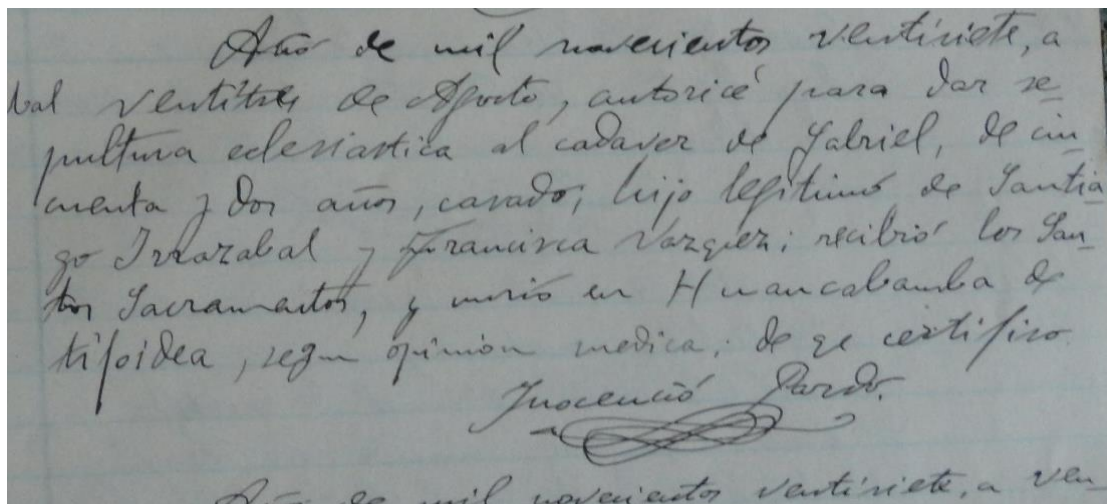 Año de mil novecientos ventisiete, a
bal ventitres de Agosto, autoricé para dar se-
pultura eclesiastica al cadaver de Gabriel, de cin
cuenta y dos años, casado; hijo legitimo de Santia-
go Irrazabal y Francisca Vazquez; recibió los San-
tos Sacramentos, y murió en Huancabamba de
tifoidea, segun opinion medica; de qe certifico.
Inocencio Pardo.
Año de mil novecientos ventisiete, a ven-